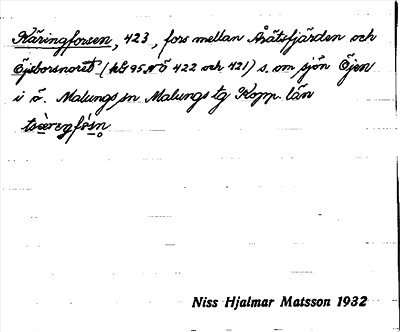 Käringforsen, 423, fors mellan Åråtsfjärden och
Öjsborsnoret (kbl 95 NÖ 422 och 421) s. om sjön Öjen
i ö. Malungs sn Malungs tg Kopp. län
Niss Hjalmar Matsson 1932